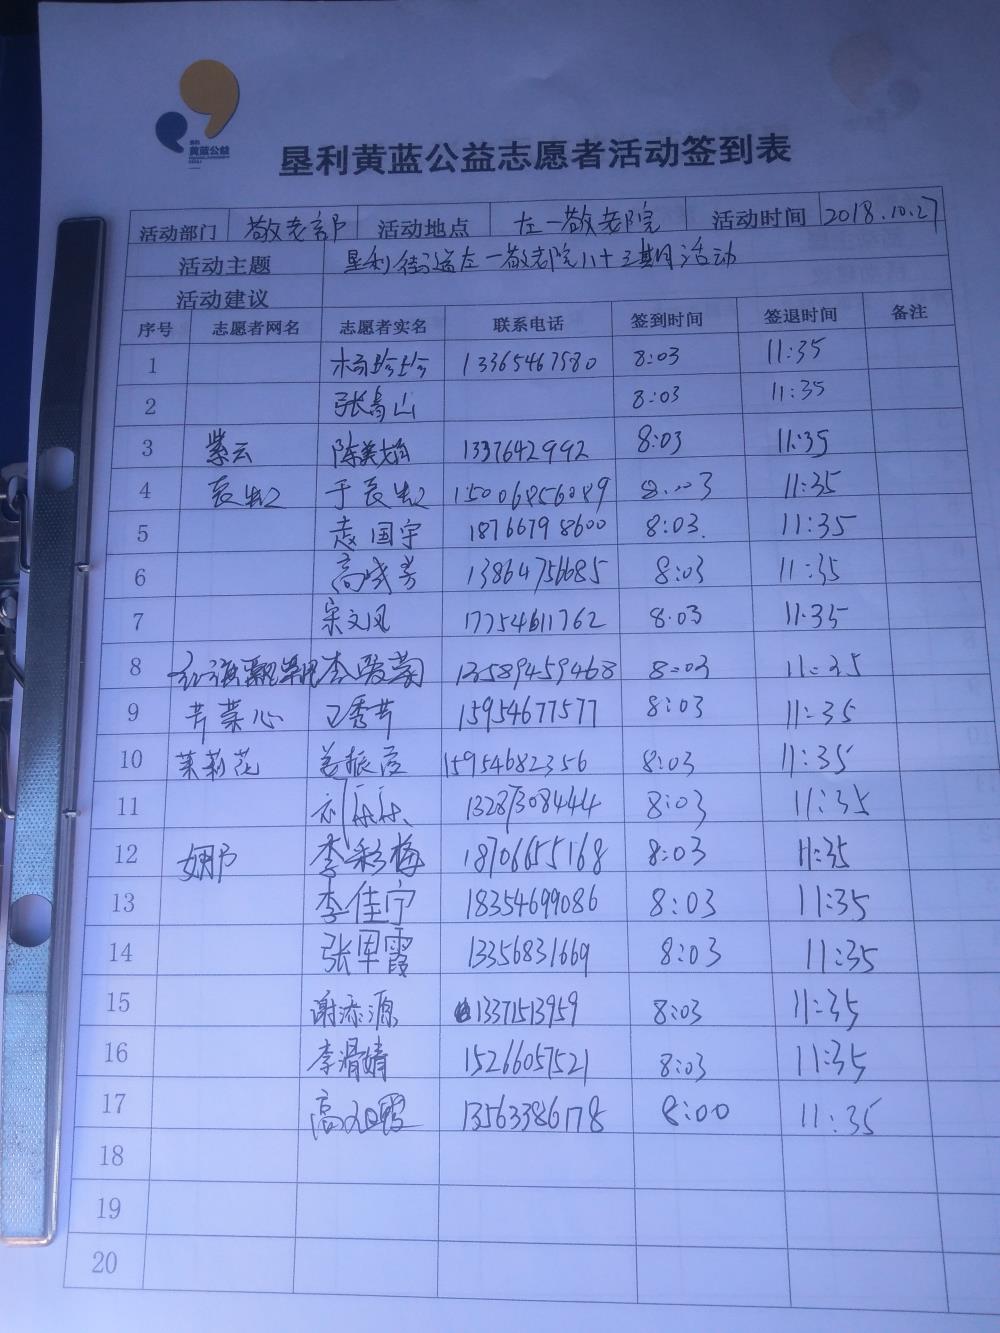 黄蓝公益
垦利黄蓝公益志愿者活动签到表
活动部门 敬老部 活动地点 左一敬老院 活动时间 2018.10.27
活动主题 垦利街道左一敬老院八十三期月活动
活动建议
序号 志愿者网名 志愿者实名 联系电话 签到时间 签退时间 备注
1 杨珍珍 13365467580 8:03 11:35
2 张青山 8:03 11:35
3 紫云 1337642992 8:03 11:35
4 15006856089 8:03 11:35
5 袁国宇 18766798600 8:03. 11:35
6 高成芳 13864756685 8:03 11:35
7 宋文凤 17754611762 8:03 11:35
8 13589459468 8:03 11:35
9 芹菜心 卫秀芹 15954677577 8:03 11:35
10 茉莉花 15954682356 8:03 11:35
11 13287308444 8:03 11:35
12 娜 李彩梅 18706655168 8:03 11:35
13 李佳宁 18354699086 8:03 11:35
14 张军霞 13356831669 8:03 11:35
15 谢添源 13371513959 8:03 11:35
16 李滑婧 15266057521 8:03 11:35
17 13563386178 8:00 11:35
18
19
20